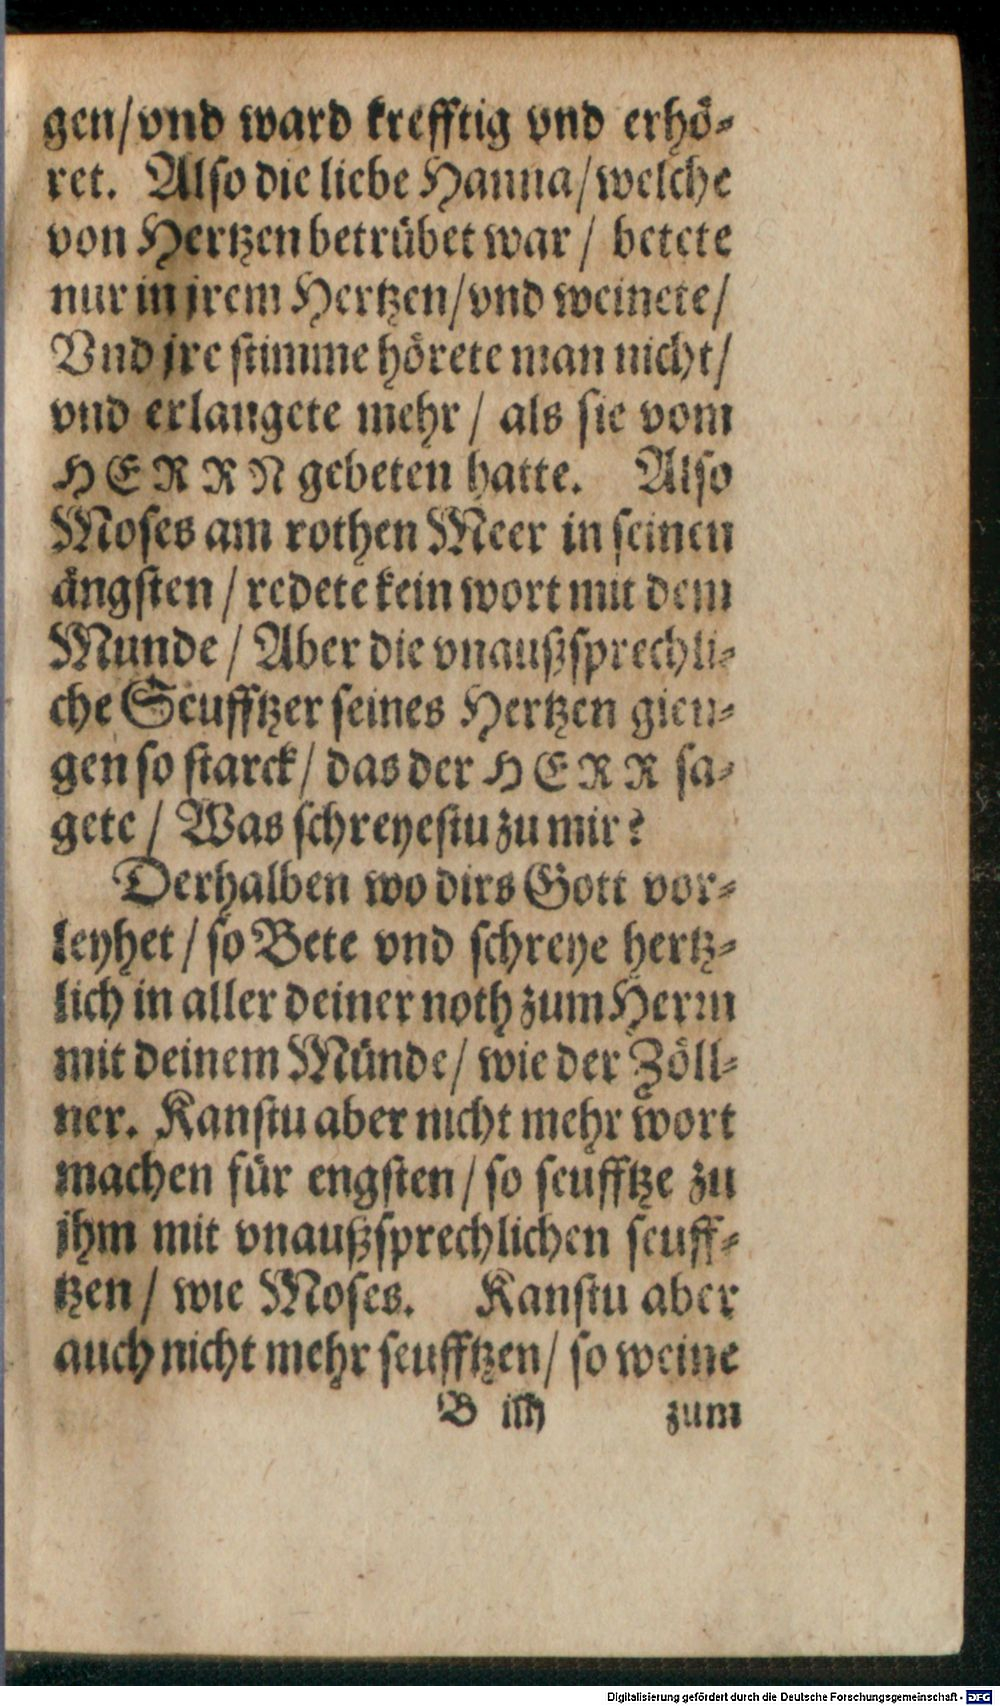 gen/vnd ward krefftig vnd erhö-
ret. Also die liebe Hanna/welche
von Hertzen betrübet war / betete
nur in jrem Hertzen/vnd weinete/
Vnd jre stimme hörete man nicht/
vnd erlangete mehr / als sie vom
HERRN gebeten hatte. Also
Moses am rothen Meer in seinen
ängsten / redete kein wort mit dem
Munde / Aber die vnaußsprechli-
che Seufftzer seines Hertzen gien-
gen so starck / das der HERR sa-
gete / Was schreyestu zu mir?
Derhalben wo dirs Gott vor-
leyhet / so Bete vnd schreye hertz-
lich in aller deiner noth zum Herrn
mit deinem Münde / wie der Zöll-
ner. Kanstu aber nicht mehr wort
machen für engsten / so seufftze zu
jhm mit vnaußsprechlichen seuff-
tzen / wie Moses. Kanstu aber
auch nicht mehr seufftzen / so weine
B iiij zum
Digitalisierung gefördert durch die Deutsche Forschungsgemeinschaft - DFG